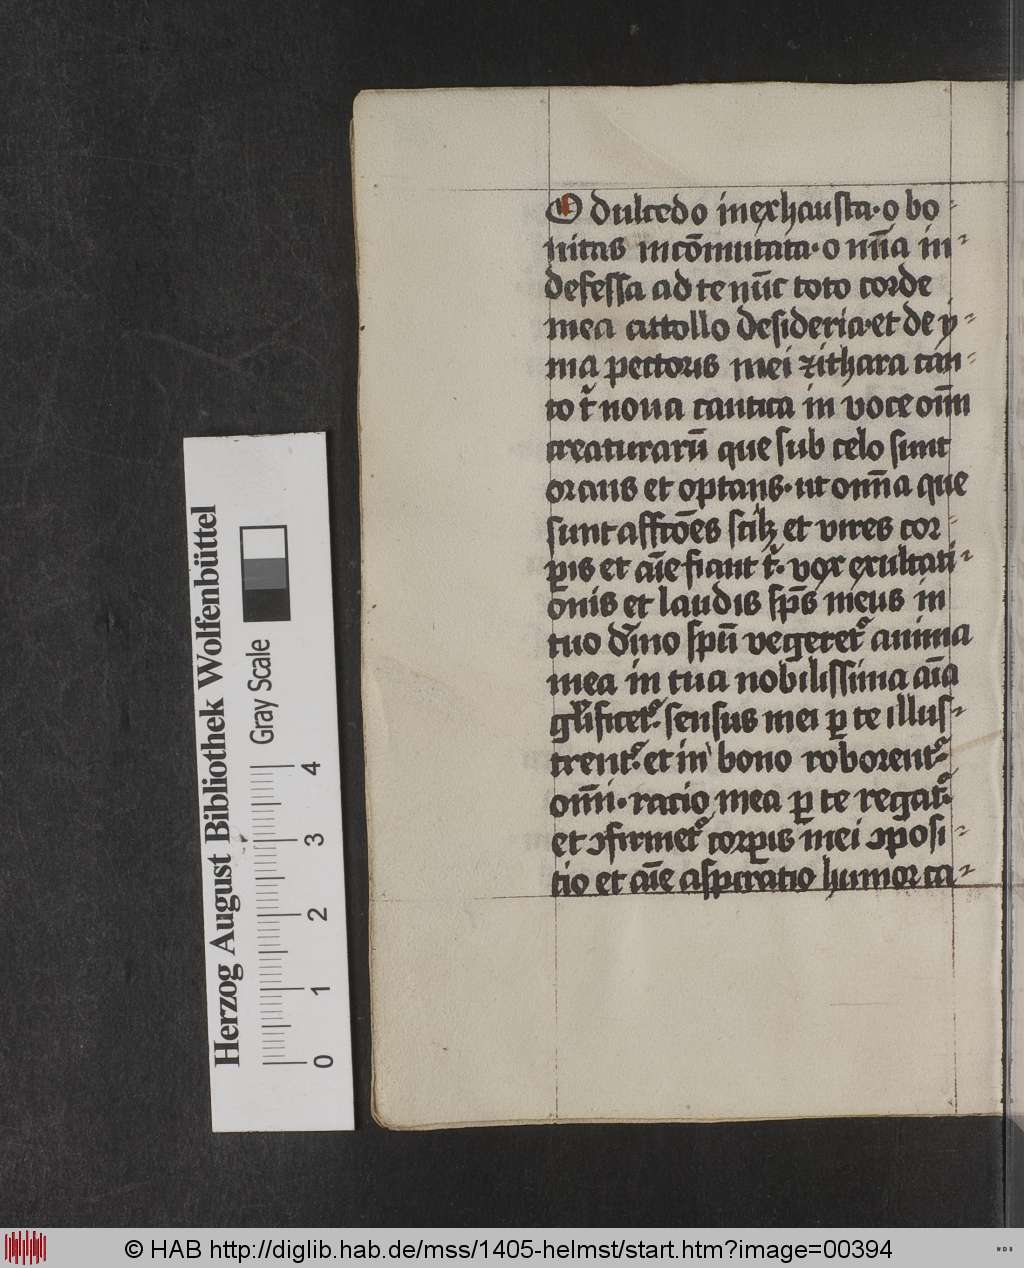 O dulcedo inexhausta · o bo⸗
nitas incōmutata · o mīa in⸗
defessa ad te nūc toto corde
mea attollo desideria · et de y⸗
ma pectoris mei zithara can⸗
to t̄ noua cantica in voce oīm
creaturarū que sub celo sunt
orans et optans · ut om̄a que
sunt affcōes scilꝫ et vires cor⸗
ꝑis et aīe fiant t̄ · vox exultati⸗
onis et laudis sp̄s meus in
tuo dīno spū vegetetᷣ anima
mea in tua nobilissima aīa
glīficetᷣ · sensus mei ꝑ te illus⸗
trentᷣ · et in bono roborentᷣ
om̄i · racio mea ꝑ te regatᷣ ·
et ꝯfirmetᷣ corꝑis mei ꝯposi⸗
tio et aīe aspiratio humor ca⸗
Herzog August Bibliothek Wolfenbüttel
Gray Scale
0 1 2 3 4
© HAB http://diglib.hab.de/mss/1405-helmst/start.htm?image=00394